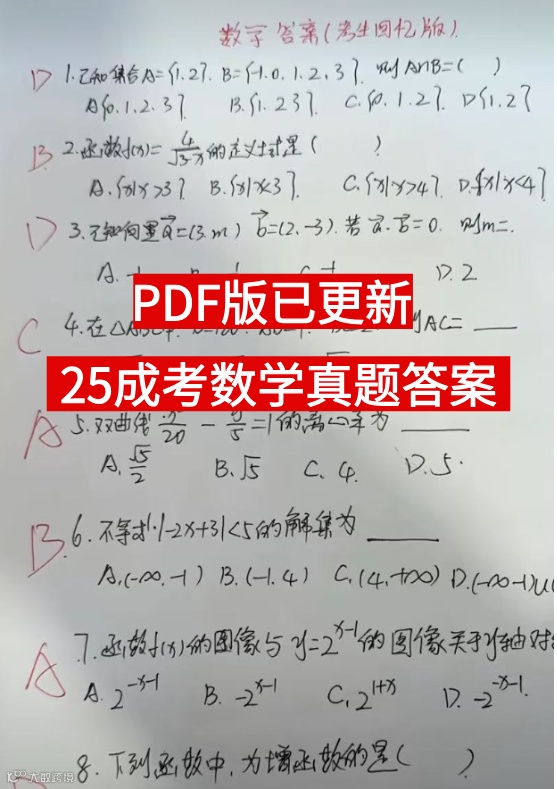 数学答案(考生回忆版)
D 1.已知集合A={1.2}. B={-1.0.1.2.3}. 则A∩B=( )
A{0.1.2.3}. B.{1.23}. C.{0.1.2}. D{1.2}
B. 2.函数f(x)=4/√3-x的定义域是( )
A.{x|x>3}. B.{x|x<3}. C.{x|x>4}. D.{x|x<4}
D 3.已知向量a=(3.m) b=(2.-3).若a.b=0. 则m=.
A. D.2
PDF版已更新
C 4.在△ 则AC=
25成考数学真题答案
A 5.双曲线 /20 - /5=1的离心率为
A.√5/2 B.√5 C.4. D.5.
B. 6.不等式|-2x+3|<5的解集为
A.(-∞.-1) B.(-1.4) C.(4,+∞) D.(-∞-1)∪(
A 7.函数f(x)的图像与y=2^x-1的图像关于y轴对
A.2^-x-1 B.-2^x-1 C.2^1+x D.-2^-x-1.
8.下列函数中,为增函数的是( )
大数跨境